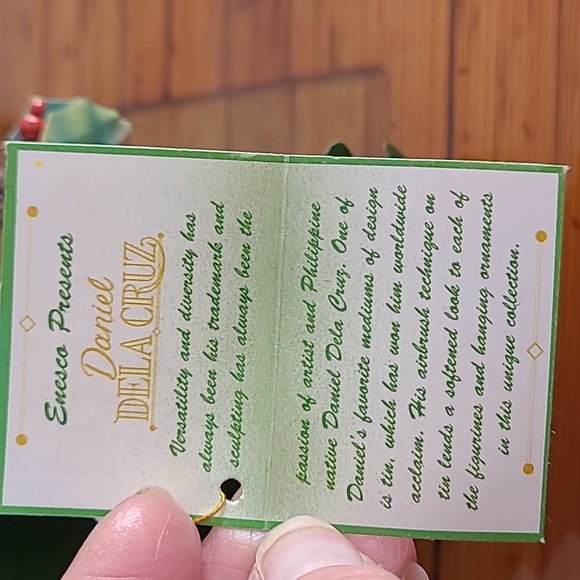 Enesco Presents
Daniel
DELA CRUZ
Versatility and diversity has
always been his trademark and
sculpting has always been the
passion of artist and Philippine
native Daniel Dela Cruz. One of
Daniel's favorite mediums of design
is tin, which has won him worldwide
acclaim. His airbrush technique on
tin lends a softened look to each of
the figurines and hanging ornaments
in this unique collection.